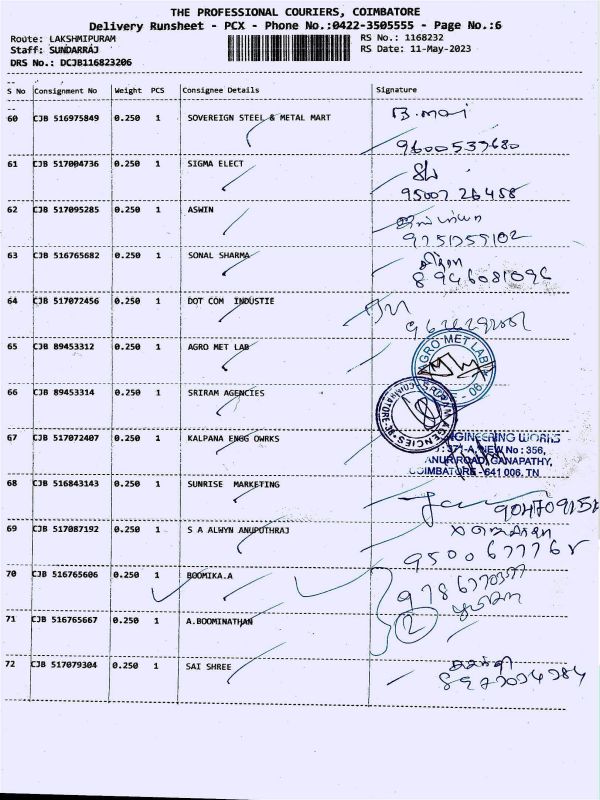 THE PROFESSIONAL COURIERS, COIMBATORE
Delivery Runsheet - PCX - Phone No.:0422-3505555 - Page No.:6
Route: LAKSHMIPURAM RS No.: 1168232
Staff: SUNDARRAJ RS Date: 11-May-2023
DRS No.: DCJB116823206
S No Consignment No Weight PCS Consignee Details Signature
60 CJB 516975849 0.250 1 SOVEREIGN STEEL & METAL MART B.mai
9600539680
61 CJB 517004736 0.250 1 SIGMA ELECT
95007 26458
62 CJB 517095285 0.250 1 ASWIN
9751755102
63 CJB 516765682 0.250 1 SONAL SHARMA
8946081096
64 CJB 517072456 0.250 1 DOT COM INDUSTIE
65 CJB 89453312 0.250 1 AGRO MET LAB AGRO MET LAB
66 CJB 89453314 0.250 1 SRIRAM AGENCIES AGENCIES COIMBATORE
67 CJB 517072407 0.250 1 KALPANA ENGG OWRKS ENGINEERING WORKS
371-A, NEW No : 356,
ROAD, GANAPATHY,
COIMBATORE - 641 006. TN
68 CJB 516843143 0.250 1 SUNRISE MARKETING
69 CJB 517087192 0.250 1 S A ALWYN ANUPUTHRAJ
70 CJB 516765606 0.250 1 BOOMIKA.A
71 CJB 516765667 0.250 1 A.BOOMINATHAN 2
72 CJB 517079304 0.250 1 SAI SHREE